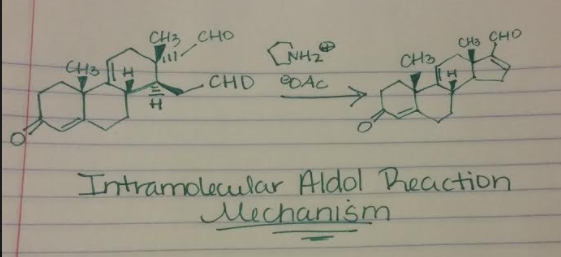 CH₃ CHO
CH₃ H CHO
H
O
NH₂⊕
⊖OAc
CH₃ CHO
CH₃ H
O
Intramolecular Aldol Reaction
Mechanism